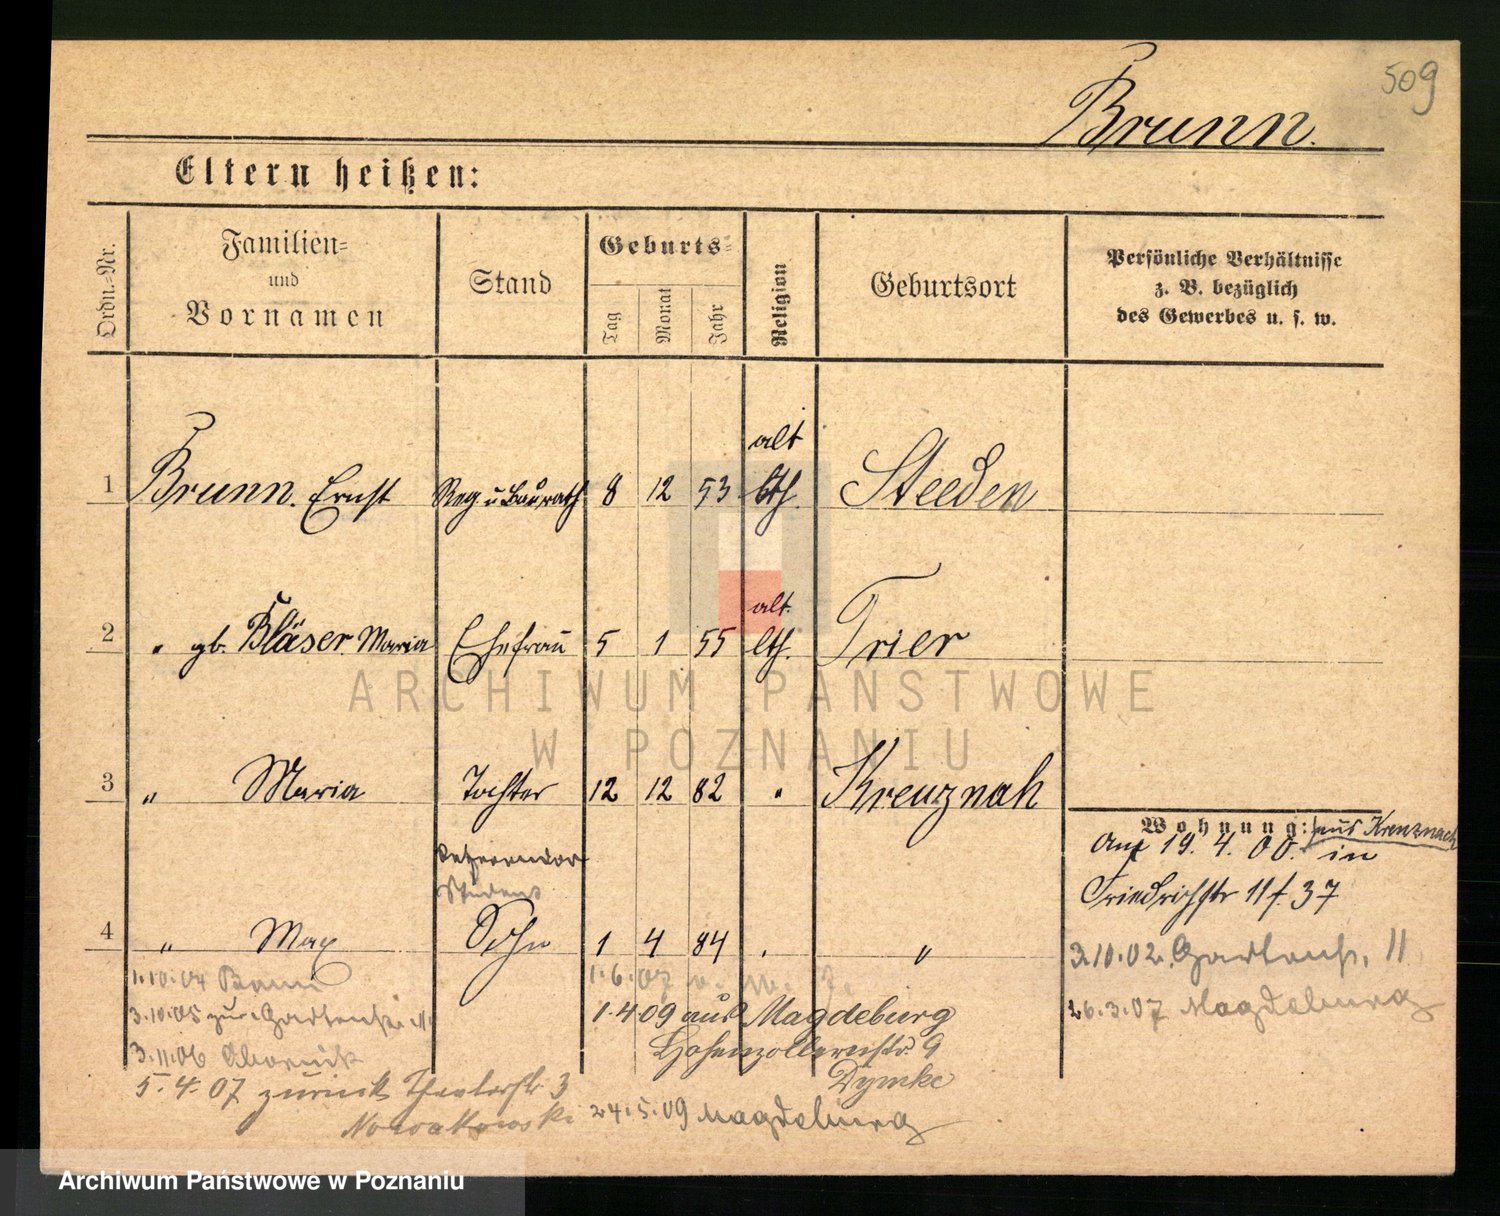 509
Brunn.
Eltern heißen:
Ordn.-Nr.
Familien-
und
Vornamen
Stand
Geburts-
Tag
Monat
Jahr
Religion
Geburtsort
Persönliche Verhältnisse
z. B. bezüglich
des Gewerbes u. s. w.
alt
1 Brunn. Ernst Reg u Baurath 8 12 53 lth. Steeden
alt.
2 " gb. Bläser Maria Ehefrau 5 1 55 lth. Trier
ARCHIWUM PAŃSTWOWE
W POZNANIU
3 " Maria Tochter 12 12 82 " Kreuznah
Wohnung: aus Kreuznach
Am 19. 4. 00. in
Friedrichstr 11 f. 37
Referendar
Student
4 " Max Sohn 1 4 84 . "
3.10.02. Gartenstr. 11
26.3.07 Magdeburg
1.10.04
3.10.05 zur. Gartenstr. 11
3.11.06 Obornik
5.4.07 zurück Theaterstr. 3
Nowakowski
1.6.07
1.4.09 aus Magdeburg
Hohenzollernstr. 9
Dymke
24.5.09 Magdeburg
Archiwum Państwowe w Poznaniu